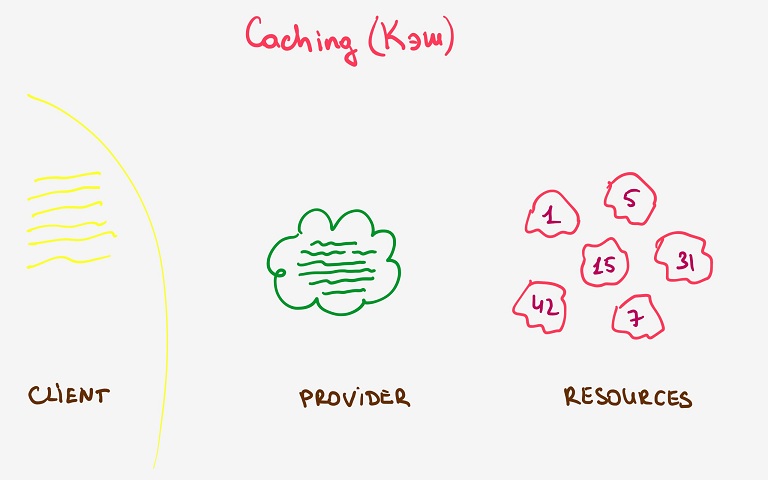 Caching (Кэш)
1
5
15
31
42
7
CLIENT
PROVIDER
RESOURCES